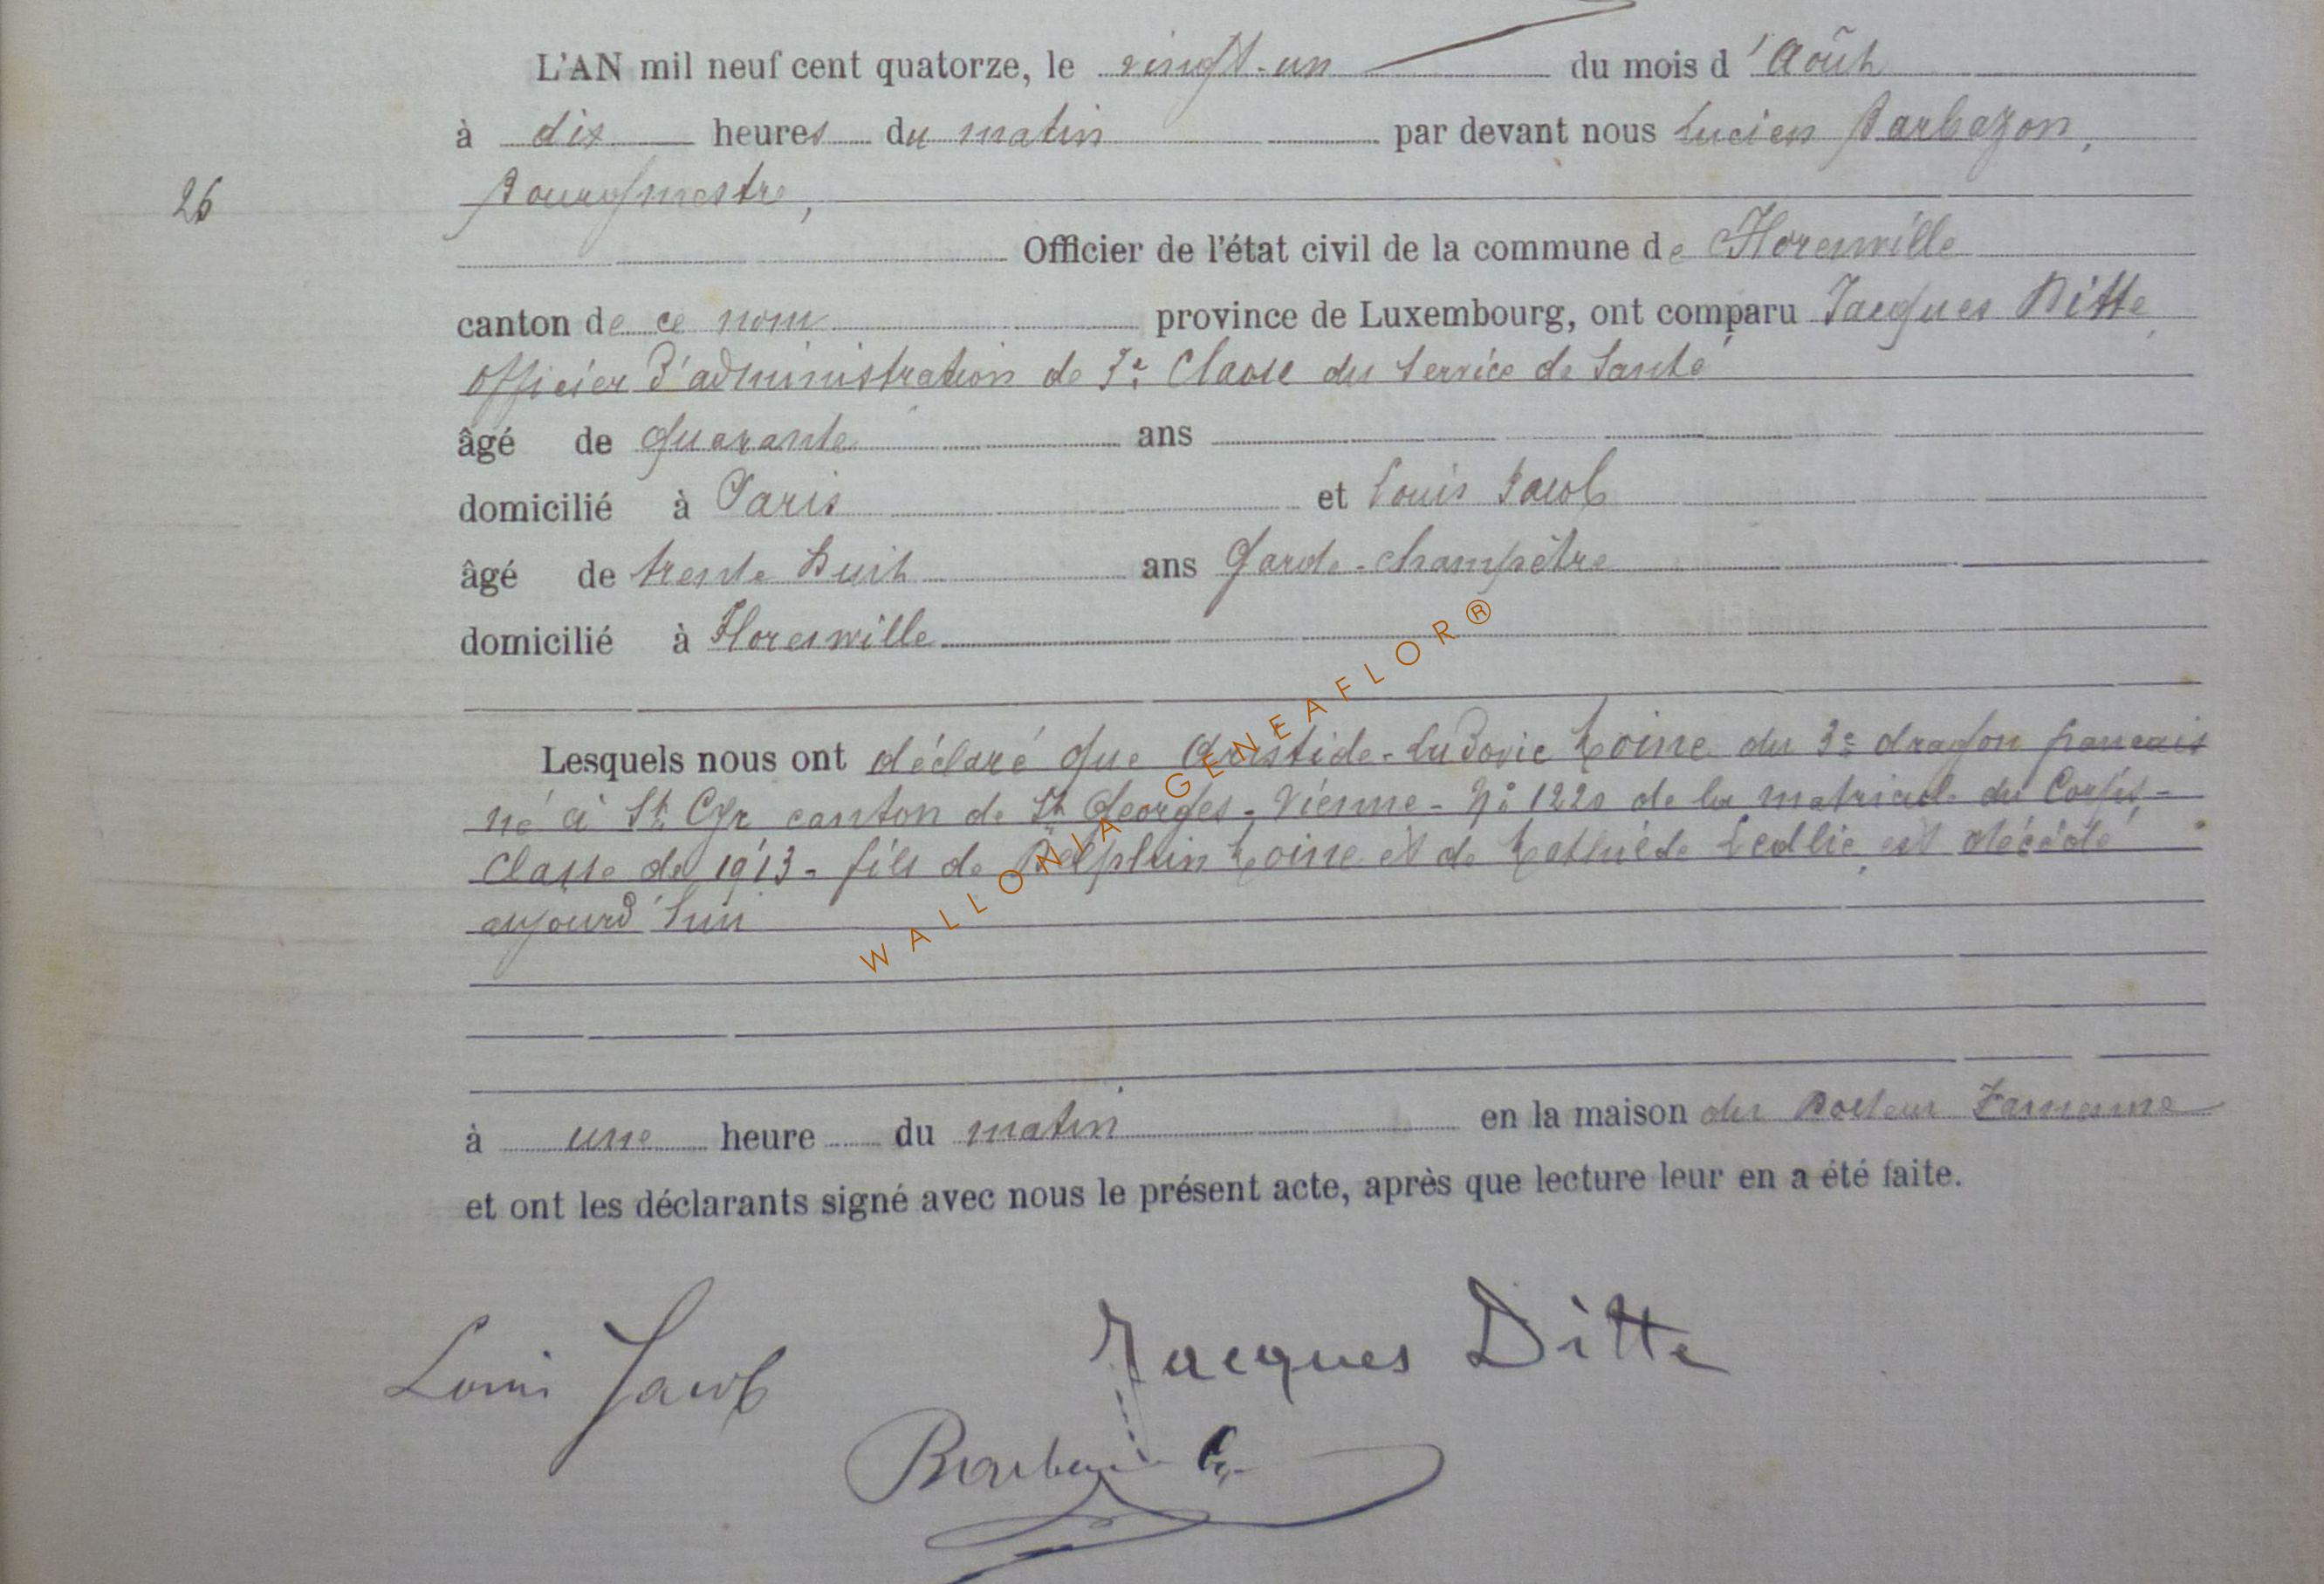 L'AN mil neuf cent quatorze, le vingt-un du mois d'Août
à dix heures du matin par devant nous Lucien Barbazon,
26
Bourgmestre,
Officier de l'état civil de la commune de Florenville
canton de ce nom province de Luxembourg, ont comparu Jacques Ditte,
officier d'administration de 3e Classe du Service de Santé
âgé de quarante ans
domicilié à Paris et Louis Jacob
âgé de trente huit ans Garde-champêtre
domicilié à Florenville
Lesquels nous ont déclaré que Aristide-Ludovic Moine du 3e dragon français
né à St Cyr canton de St Georges - Vienne - No 1220 de la matricule du Corps -
Classe de 1913 - fils de Delphin Moine et de est décédé
aujourd'hui
à une heure du matin en la maison du Docteur
et ont les déclarants signé avec nous le présent acte, après que lecture leur en a été faite.
Louis Jacob
Jacques Ditte
WALLONIA GENEAFLOR®